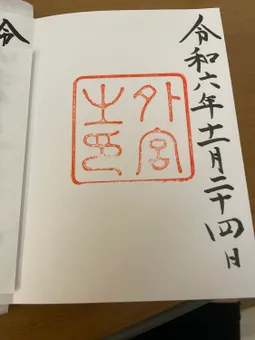 令和六年十一月二十四日
外宮
之印
令